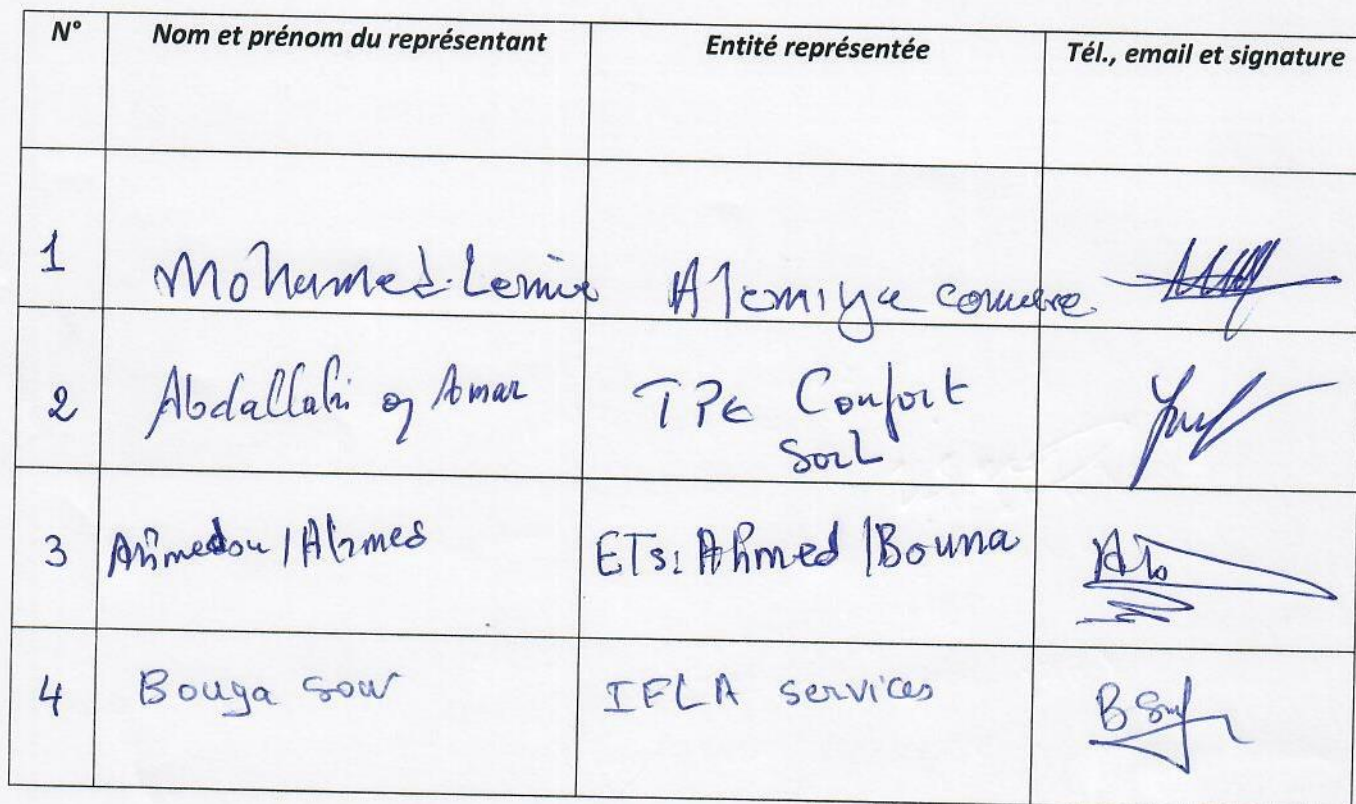 N° Nom et prénom du représentant Entité représentée Tél., email et signature
1 Mohamed Lemine Alemiya
2 Abdallahi Amar TPE Confort
Sarl
3 Ahmedou / Ahmed ETs: Ahmed / Bouna
4 Bouga Sow IFLA services B Sow